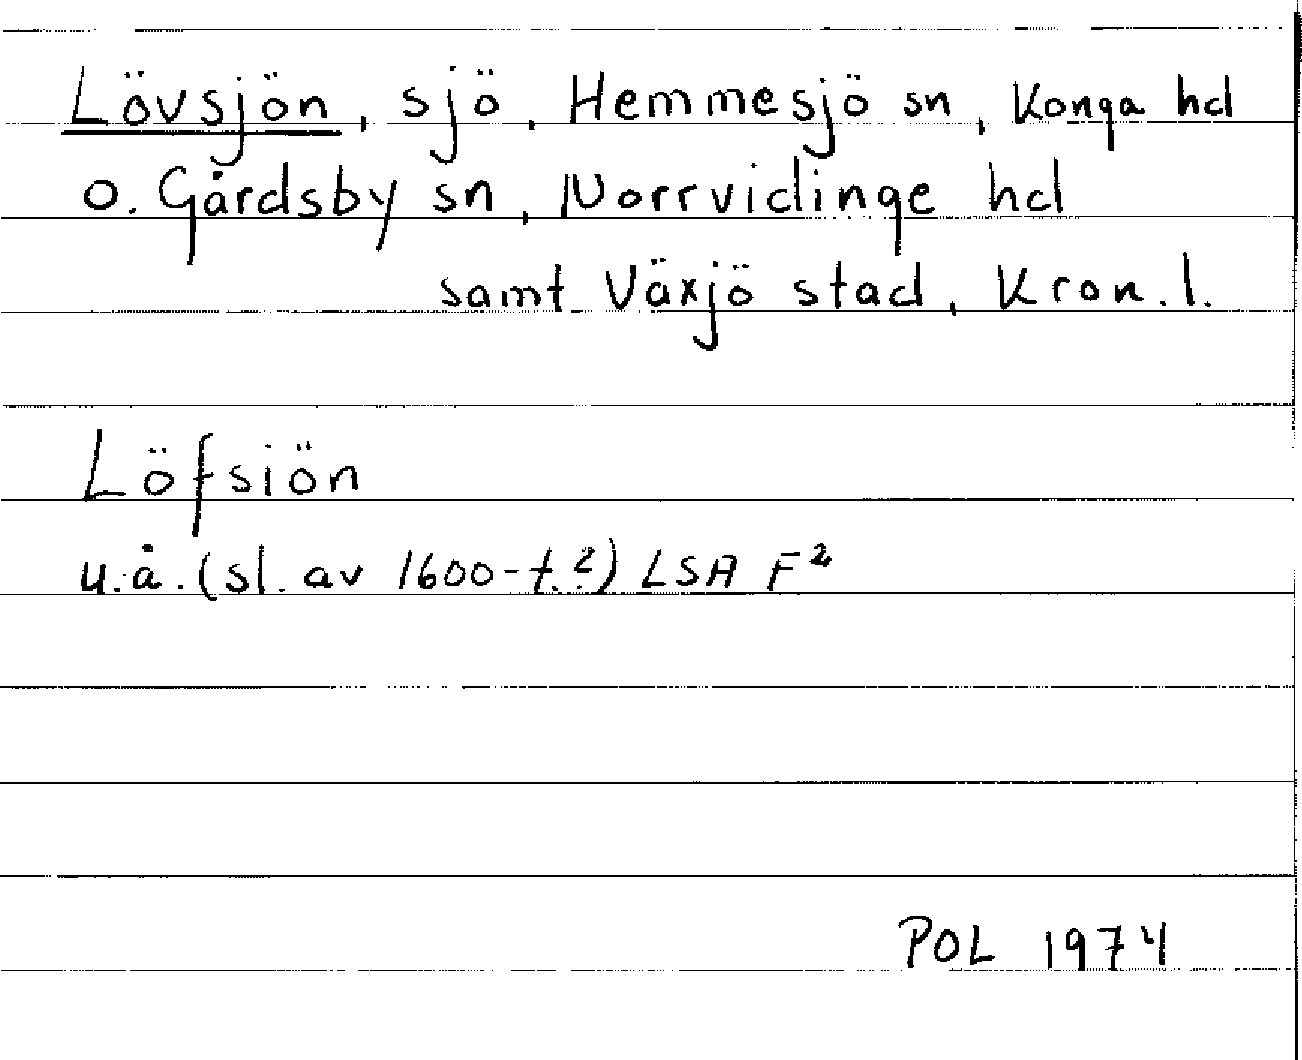 Lövsjön, sjö, Hemmesjö sn, Konga hd
o. Gårdsby sn, Norrvidinge hd
samt Växjö stad, Kron. l.
Löfsiön
u.å. (sl. av 1600-t.?) LSA F²
POL 1974